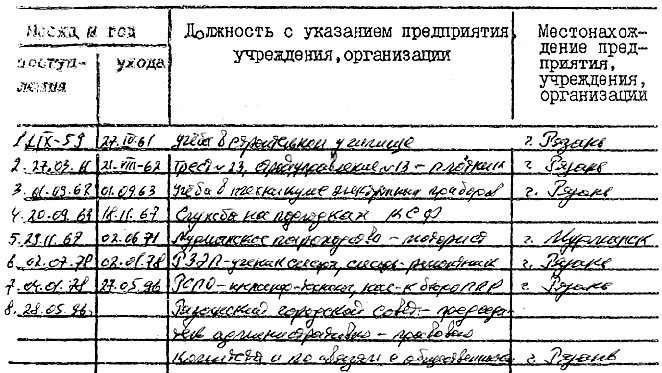 Месяц и год
Должность с указанием предприятия
учреждения, организации
Местонахож-
дение пред-
приятия,
учреждения,
организации
поступ-
ления
ухода
1. IX-59 27.III.61 учёба в строительном училище г. Рязань
2. 27.03.61 21.VIII-62 Трест №23, стройуправление №13 - плотник г. Рязань
3. 01.09.62 01.09.63 Учёба в техникуме электронных приборов г. Рязань
4. 20.09.63 18.11.67 Служба на подлодках КСФ
5. 29.11.67 02.06.71 Мурманское пароходство - моторист г. Мурманск
6. 02.07.71 02.01.78 РЗЭП - ученик слесаря, слесарь-ремонтник г. Рязань
7. 04.01.78 27.05.96 РСПО - инженер-технолог, нач-к бюро ПРР г. Рязань
8. 28.05.96 Рязанский городской совет - председа-
тель административно - правового
комитета и по связям с общественностью г. Рязань